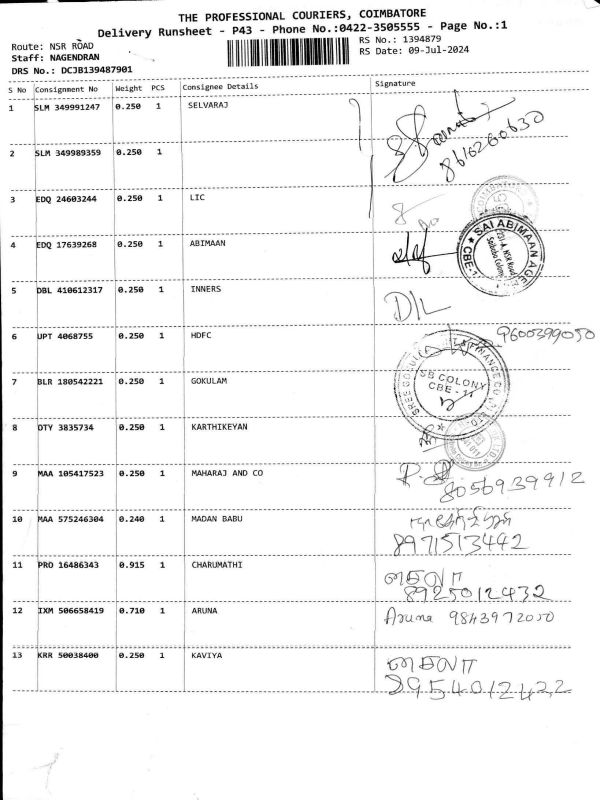 THE PROFESSIONAL COURIERS, COIMBATORE
Delivery Runsheet - P43 - Phone No.:0422-3505555 - Page No.:1
Route: NSR ROAD
RS No.: 1394879
Staff: NAGENDRAN
RS Date: 09-Jul-2024
DRS No.: DCJB139487901
S No Consignment No Weight PCS Consignee Details Signature
1 SLM 349991247 0.250 1 SELVARAJ
8616260630
2 SLM 349989359 0.250 1
3 EDQ 24603244 0.250 1 LIC
4 EDQ 17639268 0.250 1 ABIMAAN
SAI ABIMAAN
NSR Road
CBE-1
5 DBL 410612317 0.250 1 INNERS D/L
6 UPT 4068755 0.250 1 HDFC 9600399050
7 BLR 180542221 0.250 1 GOKULAM
SB COLONY
CBE - 11
8 DTY 3835734 0.250 1 KARTHIKEYAN
9 MAA 105417523 0.250 1 MAHARAJ AND CO
8056939912
10 MAA 575246304 0.240 1 MADAN BABU
8971513442
11 PRO 16486343 0.915 1 CHARUMATHI
8925012432
12 IXM 506658419 0.710 1 ARUNA Aruna 9843972050
13 KRR 50038400 0.250 1 KAVIYA
8954012422